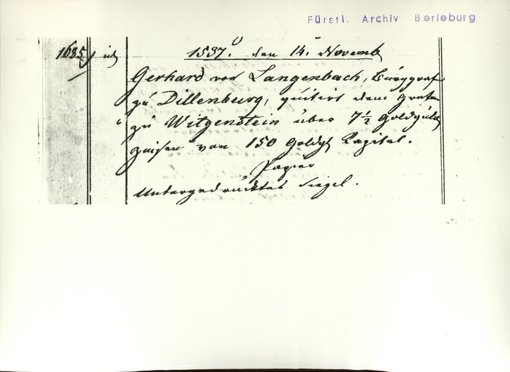 Fürstl. Archiv Berleburg
1685
1537. den 14. Novemb
Gerhard von Langenbach, Burggraf
zu Dillenburg, quitirt dem Grafen
zu Witgenstein über 7½ Goldguld
Zinsen von 150 Goldg Kapital.
Papier
Untergedrücktes Siegel.